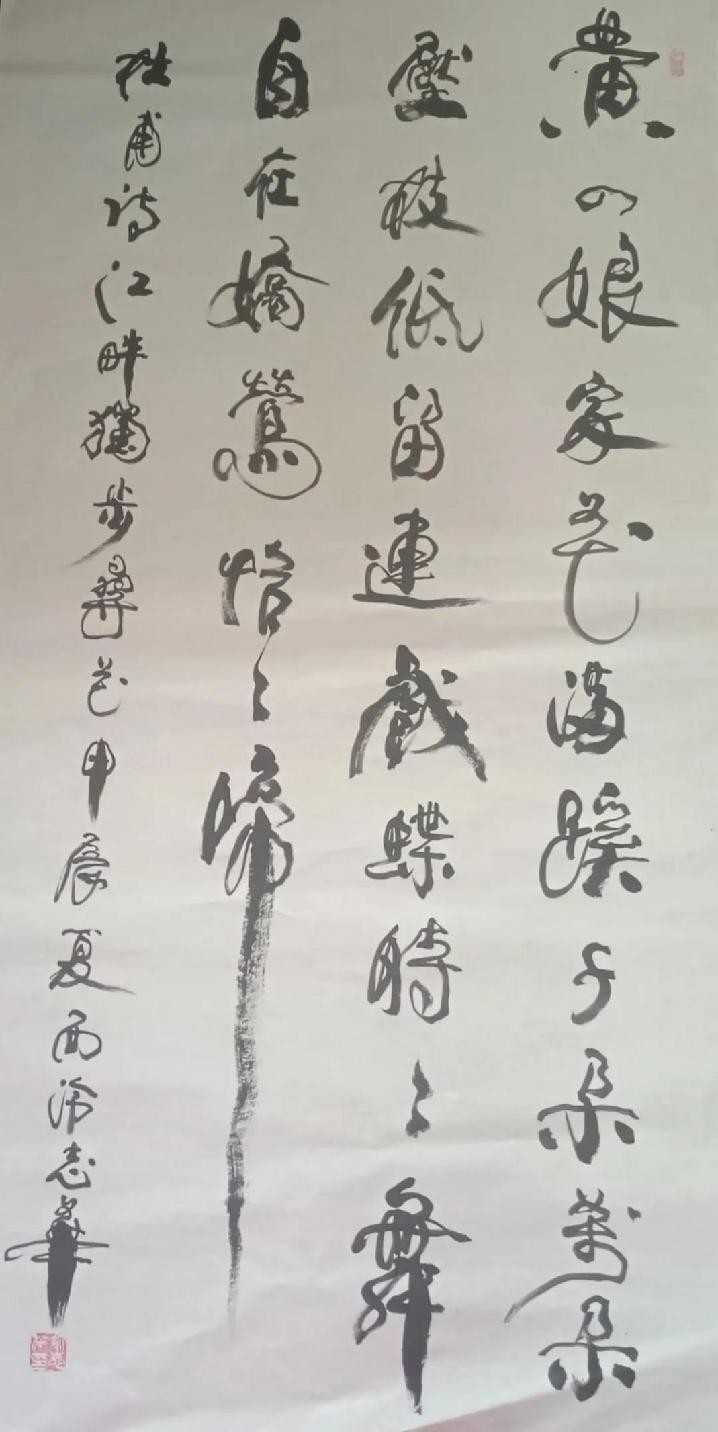 黃四娘家花滿蹊千朵萬朵
壓枝低留連戲蝶時々舞
自在嬌鶯恰々啼
杜甫詩江畔獨步尋花甲辰夏西泠志華